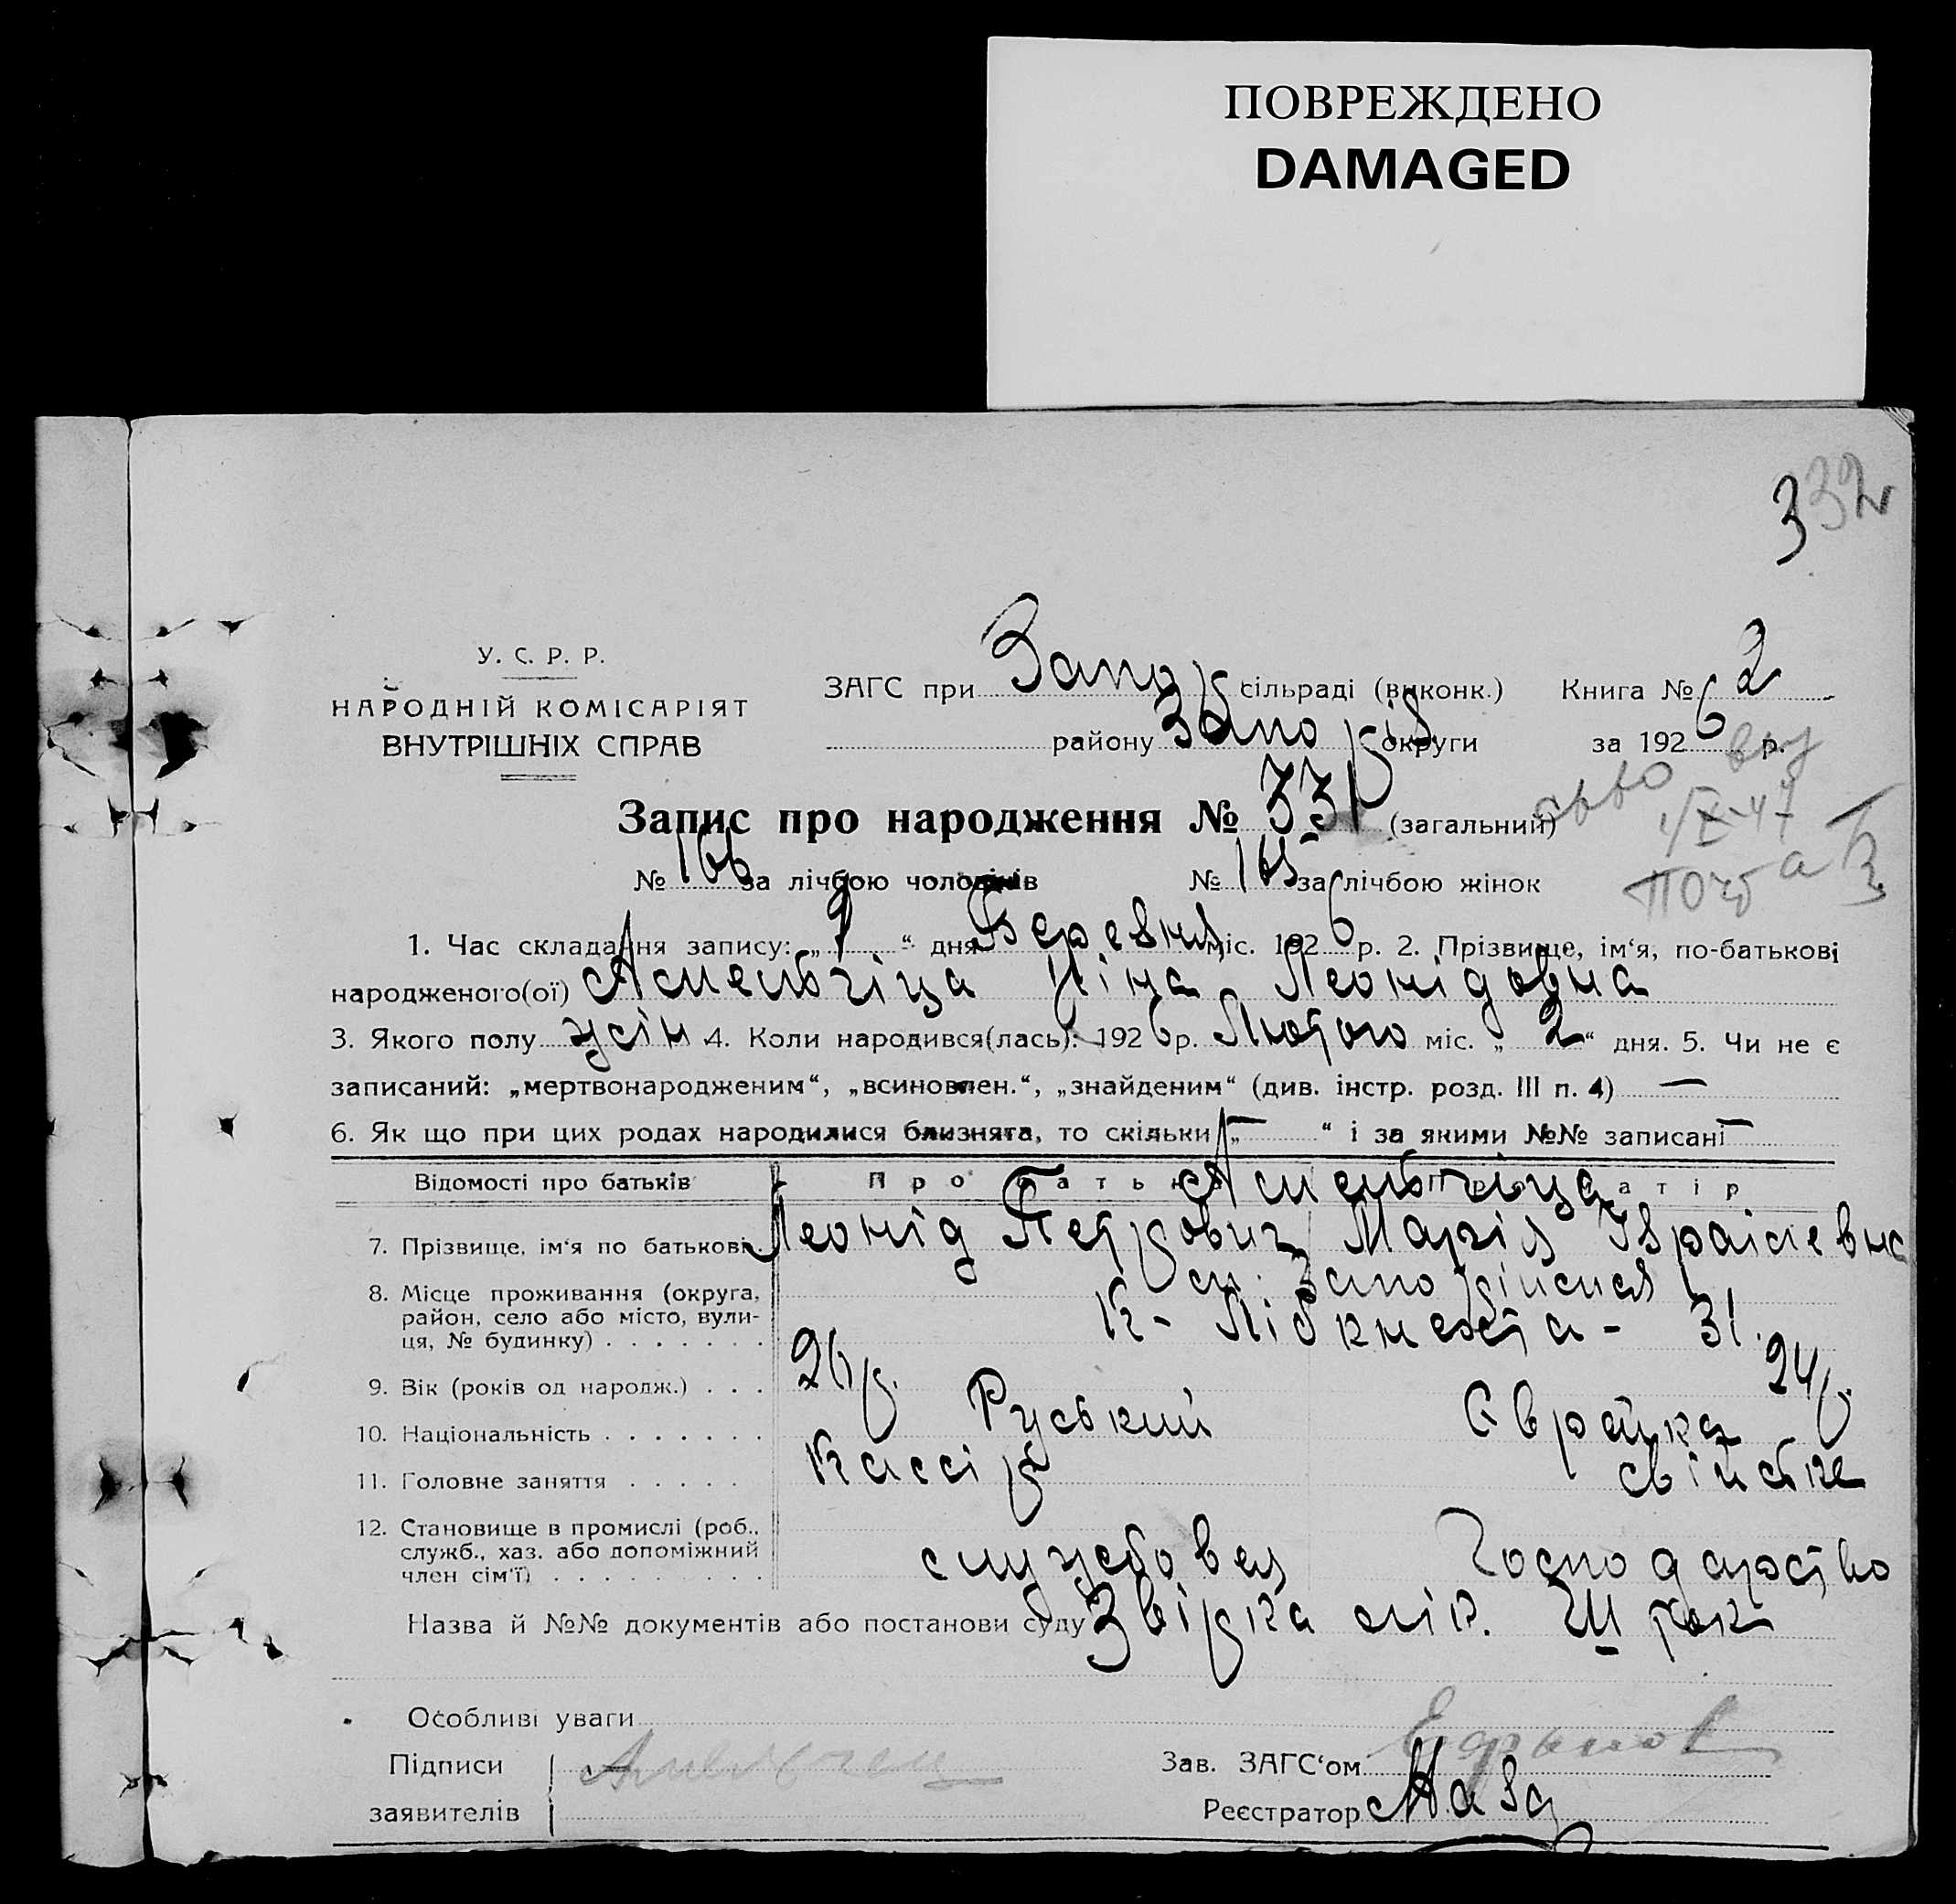 ПОВРЕЖДЕНО
DAMAGED
332
У. С. Р. Р.
НАРОДНІЙ КОМІСАРІЯТ
ВНУТРІШНІХ СПРАВ
ЗАГС при Запор сільраді (виконк.) Книга № 2
району Запоріз округи за 1926 р.
Запис про народження № 331 (загальний)
№ 166 за лічбою чоловіків № 165 за лічбою жінок
1. Час складання запису: „9“ дня Березня міс. 1926 р. 2. Прізвище, ім‘я, по-батькові
народженого(ої) Ніна Леонідовна
3. Якого полу жін 4. Коли народився(лась): 1926 р. Лютого міс. „2“ дня. 5. Чи не є
записаний: „мертвонародженим“, „всиновлен.“, „знайденим“ (див. інстр. розд. III п. 4) —
6. Як що при цих родах народилися близнята, то скільки „—“ і за якими №№ записані —
Відомості про батьків Про батька Про матір
7. Прізвище, ім‘я по батькові Леонід Петрович Марія Ізраілевна
8. Місце проживання (округа, район, село або місто, вулиця, № будинку) м. Запоріжжя
К- Лібкнехта - 31.
9. Вік (років од народж.) 26 р. 24 р.
10. Національність Руський Єврейка
11. Головне заняття Кассір свійське
12. Становище в промислі (роб., служб., хаз. або допоміжний член сім‘ї) службовец господарство
Назва й №№ документів або постанови суду Звірка лік. III рок
Особливі уваги
Підписи
заявителів
Зав. ЗАГС‘ом
Реєстратор